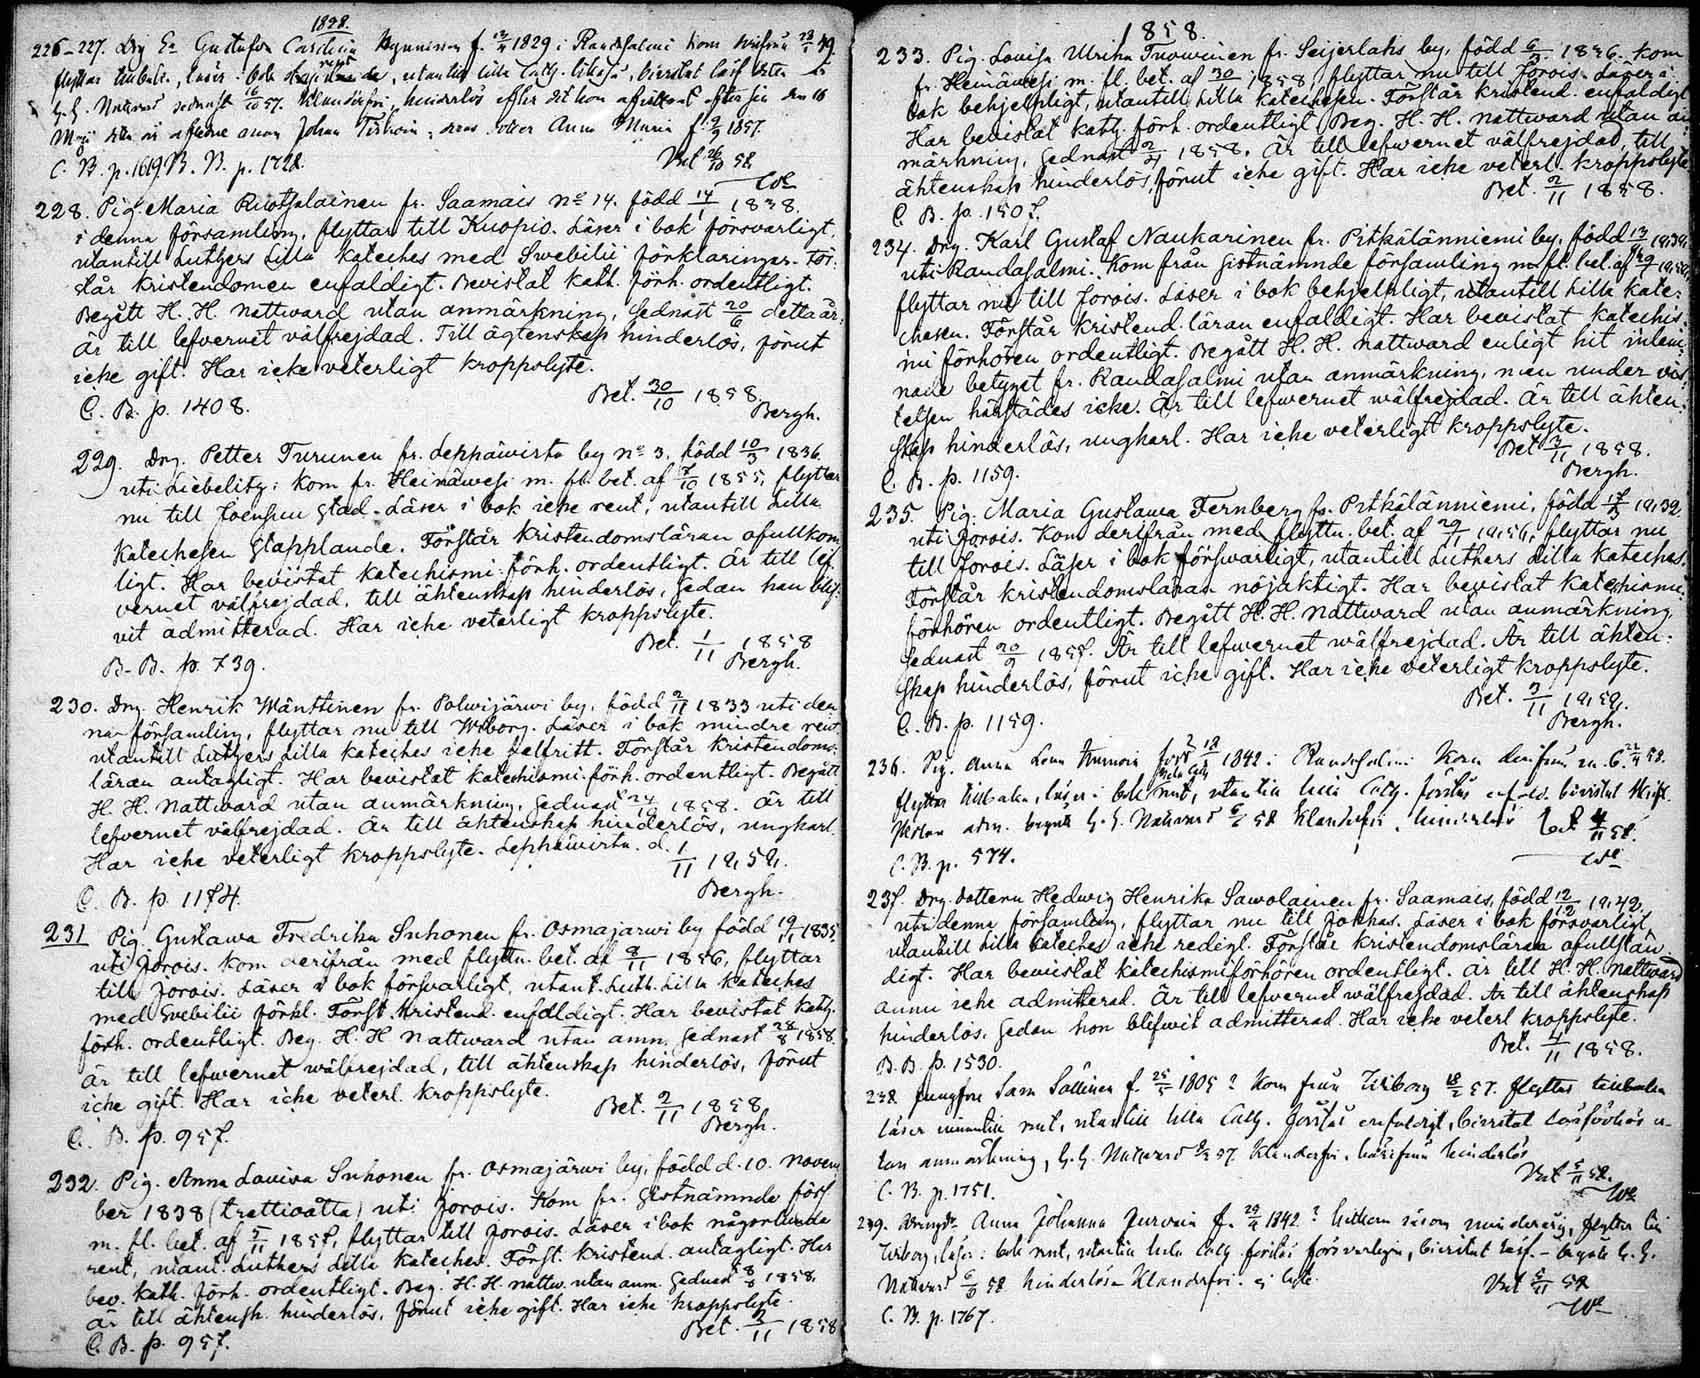 1858.
226-227. Drg Er Gustafson Carolina f. 1829 i Randasalmi kom
flyttar tillbaka, läser i bok rent, utantill lilla Cath.
H. H. Nattvard sednast 16/10 57. hinderlös efter
Johan dotter Anna Maria f. 1857.
C. B. p. 1619 B. B. p. 1728. Bet 26/10 58.
228. Pig. Maria Ruotsalainen fr. Saamais No 14. född 14/1 1838.
i denna församling, flyttar till Kuopio. Läser i bok försvarligt,
utantill Luthers Lilla Kateches med Swebilii förklaringar. För-
står Kristendomen enfaldigt. Bevistat kath. förh. ordentligt.
Begått H. H. Nattward utan anmärkning, sednast 20/6 detta år.
Är till lefvernet välfrejdad. Till ägtenskap hinderlös, förut
icke gift. Har icke veterligt kroppslyte.
Bet. 30/10 1858.
C. B. p. 1408. Bergh.
229. Drg. Petter Turunen fr. Leppäwirta by No 3. född 10/3 1836.
uti Liebelitz: kom fr. Heinäwesi m. fl. bet. af 7/10 1855, flyttar
nu till Joensuu Stad. Läser i bok icke rent, utantill Lilla
Katechesen Stapplande. Förstår Kristendomsläran ofullkom-
ligt. Har bevistat Katechismi förh. ordentligt. Är till lef-
vernet välfrejdad, till ächtenskap hinderlös, sedan han blif-
vit admitterad. Har icke veterligt kroppslyte.
Bet. 1/11 1858
B. B. p. 739. Bergh.
230. Drg. Henrik Mänttinen fr. Polwijärwi by, född 2/11 1833 uti den-
na församling, flyttar nu till Wiborg. Läser i bok mindre rent
utantill Luthers Lilla kateches icke felfritt. Förstår Kristendoms-
läran antagligt. Har bevistat katechismi förh. ordentligt. Begått
H. H. Nattward utan anmärkning, sednast 1858. Är till
lefvernet välfrejdad. Är till ächtenskap hinderlös, ungkarl.
Har icke veterligt kroppslyte. Lephäwirta. d. 1/11 1858.
C. B. p. 1174. Bergh.
231 Pig. Gustawa Fredrika Suhonen fr. Osmajärwi by född 19/11 1835
uti Jorois. Kom derifrån med flyttn. bet. af 8/11 1856, flyttar
till Jorois. Läser i bok försvarligt, utant. Luth. Lilla kateches
med Svebilii förkl. Först. kristend. enfaldigt. Har bevistat kath.
förh. ordentligt. Beg. H. H. Nattward utan anm. sednast 28/8 1858.
Är till lefwernet wälfrejdad, till ächtenskap hinderlös, förut
icke gift. Har icke veterl. kroppslyte.
Bet. 2/11 1858.
C. B. p. 957. Bergh.
232. Pig. Anna Lovisa Suhonen fr. Osmajärwi by, född d. 10. novem-
ber 1838 (trettioåtta) uti Jorois. Kom fr. sistnämnde förs.
m. fl. bet. af 5/11 1857, flyttar till Jorois. Läser i bok någorlunda
rent, utant. Luthers Lilla Kateches. Först. kristend. antagligt. Har
bev. kath. förh. ordentligt. Beg. H. H. nattw. utan anm. sednast 8/8 1858.
är till ächtensk. hinderlös, förut icke gift. Har icke kroppslyte.
Bet. 2/11 1858
C. B. p. 957.
1858.
233. Pig. Lovisa Ulrika fr. Seijerlahs by, född 6/3 1836. kom
fr. Heinäwesi m. fl. bet. af 30/ 1858, flyttar nu till Jorois. Läser i
bok behjelpligt, utantill Lilla katechesen. Förstår kristend. enfaldigt
Har bevistat kath. förh. ordentligt. Beg. H. H. nattward utan an-
märkning, sednast 1858. Är till lefwernet välfrejdad, till
ächtenskap hinderlös, förut icke gift. Har icke veterl. kroppslyte
Bet. 2/11 1858.
C. B. p. 1507.
234. Drg. Karl Gustaf Naukarinen fr. Pitkälänniemi by, född
uti Randasalmi. Kom från sistnämnde församling m. fl. bet. af
flyttar nu till Jorois. Läser i bok behjelpligt, utantill Lilla kate-
chesen. Förstår kristend. läran enfaldigt. Har bevistat katechis-
mi förhören ordentligt. Begått H. H. nattward enligt hit inlem-
nade betyget fr. Randasalmi utan anmärkning, men under vis-
telsen härstädes icke. Är till lefwernet wälfrejdad. Är till ächten-
skap hinderlös, ungkarl. Har icke veterligt kroppslyte.
Bet. 2/11 1858.
C. B. p. 1159. Bergh.
235. Pig. Maria Gustawa Fernberg fr. Pitkälänniemi, född 1832
uti Jorois. Kom derifrån med flyttn. bet. af 1856, flyttar nu
till Jorois. Läser i bok försvarligt, utantill Luthers Lilla kateches.
Förstår kristendomsläran nöjaktigt. Har bevistat Katechismi-
förhören ordentligt. Begått H. H. Nattward utan anmärkning,
sednast 20/9 1857. Är till lefwernet wälfrejdad. Är till ächten-
skap hinderlös, förut icke gift. Har icke veterligt kroppslyte.
Bet. 3/11 1858.
C. B. p. 1159. Bergh.
236. Pig. Anna Lena född 1842 i Randasalmi Kom derifrån
flyttar tillbaka, läser i bok rent, utantill lilla Cath. förstår enfald. bevistat
adm. begått H. H. Nattvard 58 Klanderfri, hinderlös Bet 4/11 58.
C. B. p. 574.
237. Drg. dottern Hedwig Henrika Sawolainen fr. Saamais, född 12/12 1842
uti denna församling, flyttar nu till Jokkas. Läser i bok försvarligt,
utantill Lilla kateches icke redigt. Förstår kristendomsläran ofullstän-
digt. Har bevistat katechismiförhören ordentligt. är till H. H. Nattward
ännu icke admitterad. Är till lefvernet wälfrejdad. Är till ächtenskap
hinderlös, sedan hon blifwit admitterad. Har icke veterl kroppslyte.
Bet. 4/11 1858.
B. B. p. 1530.
238. Jungfru Sara Sallinen f. 25/5 1805? kom från Wiborg 57. flyttar tillbaka
läser innantill rent, utantill lilla Cath. förstår enfaldigt, bevistat läsförhör u-
tan anmärkning, H. H. Nattvard 57. Klanderfri, härifrån hinderlös
Bet 5/11 58.
C. B. p. 1751.
239. Anna Johanna f. 24/4 1842? hitkom såsom minderårig, flyttar till
Wiborg, läser i bok rent, utantill lilla Cath. förstår försvarligen, bevistat läsf. - begått H. H.
Nattvard 58 hinderlös Klanderfri. ej lyte. Bet 5/11 58
C. B. p. 1767.